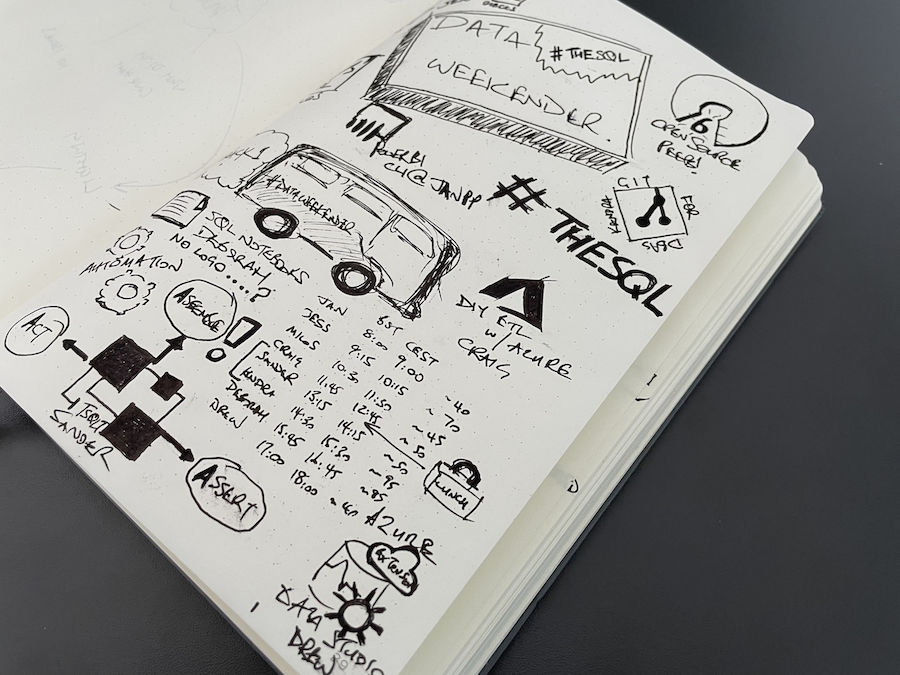 DATA
#THESQL
WEEKENDER.
OPEN SOURCE
POWER BI
#DATAWEEKENDER
# THESQL
GIT
FOR
DBAS
SQL NOTEBOOKS
DEBORAH
NO LOGO....?
AUTOMATION
DIY ETL
W/ AZURE
CRAIG
ACT
ASSEMBLE
!
TSQLT
SANDER
ASSERT
BST CEST
JAN 8:00 9:00 ~40
JESS 9:15 10:15 ~70
MILOS 10:30 11:30 ~45
CRAIG 11:45 12:45 ~50
SANDER 13:15 14:15 ~50
KENDRA 14:30 15:30 ~95
DEBORAH 15:45 16:45 ~85
DREW 17:00 18:00
LUNCH
AZURE
EXTENSION
DATA STUDIO
DREW
1
D